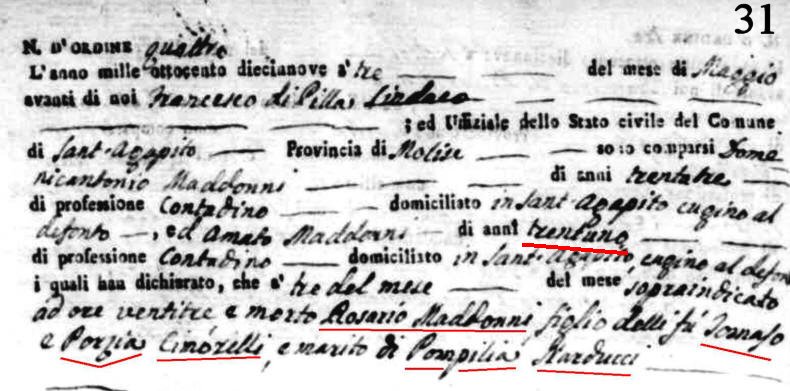 31
N. D'ORDINE quattro
L'anno mille ottocento diecianove a' tre del mese di Maggio
avanti di noi Francesco di Pilla, Sindaco
; ed Uffiziale dello Stato civile del Comune
di Sant-Agapito Provincia di Molise sono comparsi Dome
nicantonio Maddonni di anni trentatre
di professione Contadino domiciliato in Sant-Agapito cugino al
defonto , ed Amato Maddonni di anni trentuno
di professione Contadino domiciliato in Sant-Agapito, cugino al defon
i quali han dichiarato, che a' tre del mese del mese sopraindicato
ad ore ventitre e morto Rosario Maddonni, figlio delli fù Tomaso
e Porzia Cimorelli, e marito di Pompilia Narducci